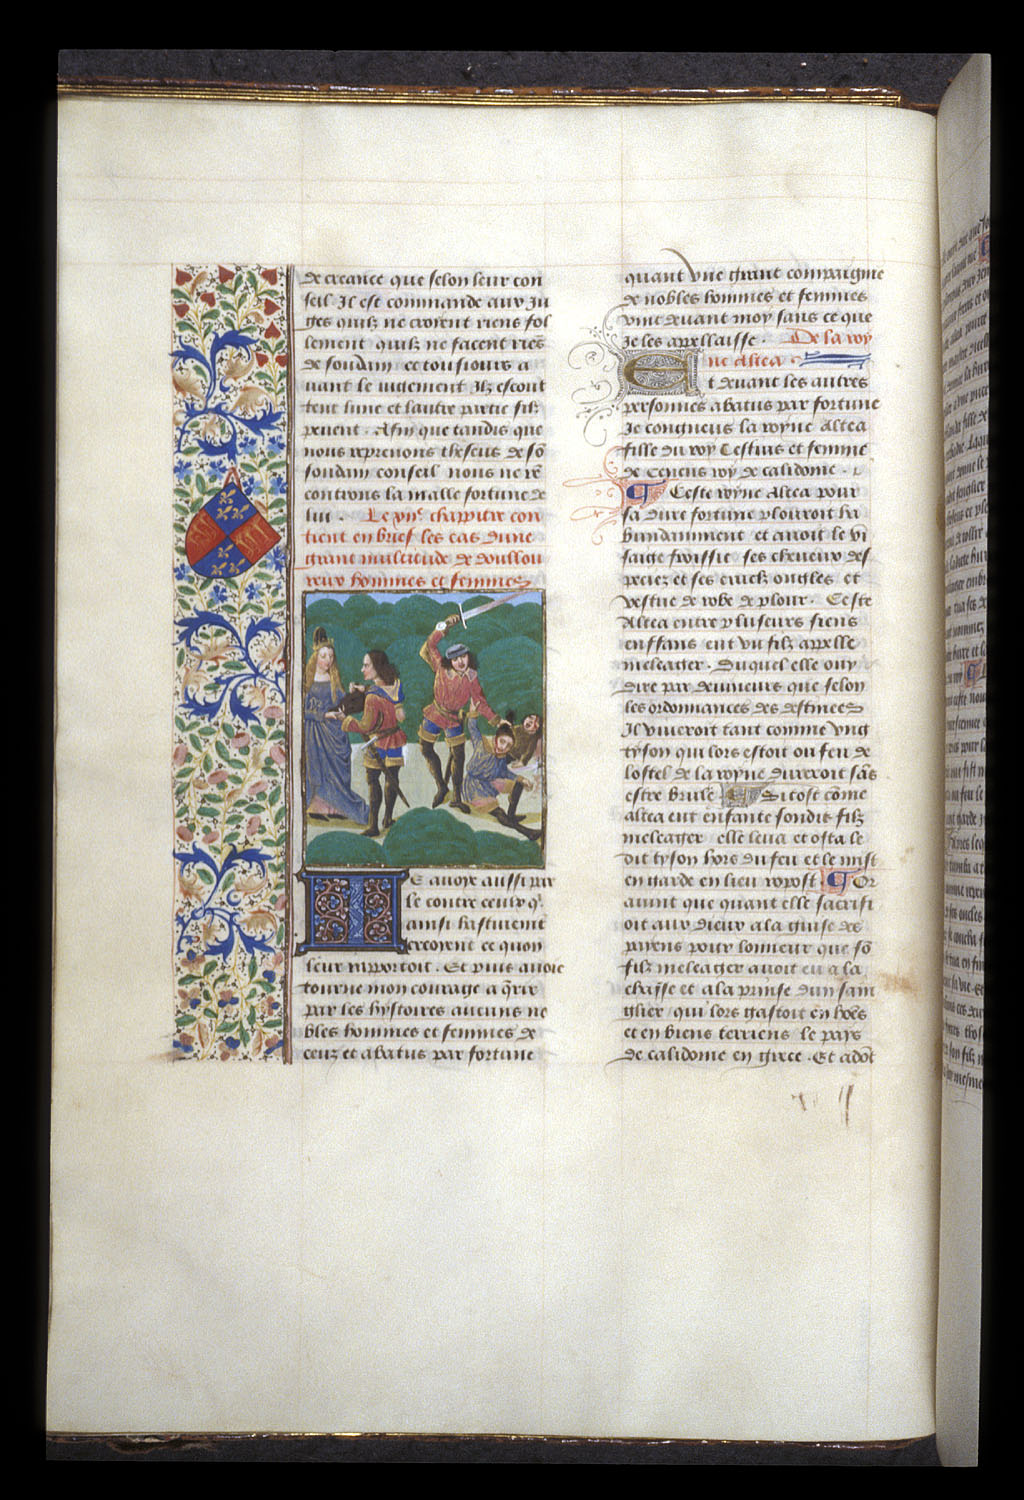 de creance que selon leur con
seil Il est commande aux Ju
ges quilz ne croient riens fol
lement quilz ne facent ries
de soudain ce tousiours a
uant le iugement Ilz escout
tent lune et lautre partie silz
peuent. Afin que tandis que
nous reprenons theseus de so
soudain conseil nous ne re
controns la malle fortune de
lui. Le chappitre con
tient en brief les cas dune
grant multitude de doullou
reux hommes et femmes
Ie auoye aussi par
le contre ceulx q
ainsi hastiuemt
croient ce quon
leur rapportoit. Et puis auoie
tourne mon courage a qrir
par les hystoires aucuns no
bles hommes et femmes de
ceuz et abatus par fortune
quant vne grant compaignie
de nobles hommes et femmes
vint deuant moy sans ce que
Ie les appellaisse. De la roy
ne Altea
Et deuant les autres
personnes abatus par fortune
Je congneus la royne Altea
fille du roy Cestius et femme
de Ceneus roy de calidome.
Ceste royne Altea pour
sa dure fortune plouroit ha
bundamment et auoit le vi
saige froissie ses cheueux des
pecez et ses ongles et
vestue de robe de plour. Ceste
Altea entre pluseurs siens
enffans eut vn filz appelle
meleager. Duquel elle ouy
dire par deuineurs que selon
les ordonnances des destinees
Il viueroit tant comme vng
tyson qui lors estoit ou feu de
lostel de la royne dureroit sas
estre brusle Si tost come
altea eut enfante sondit filz
meleager elle leua et osta le
dit tyson hors du feu et le mist
en garde en lieu repost. Or
auint que quant elle sacrifi
oit aux dieux a la guise des
payens pour lonneur que so
filz meleager auoit eu a la
chasse et a la prinse dun san
glier qui lors gastoit en bles
et en biens terriens le pays
de calidome en grece. Et adot